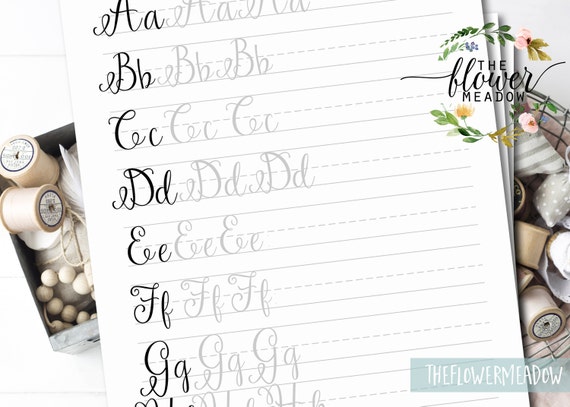 Aa Aa Aa
Bb Bb Bb
Cc Cc Cc
Dd Dd Dd
Ee Ee Ee
Ff Ff Ff
Gg Gg Gg
THE
flower
MEADOW
THEFLOWERMEADOW